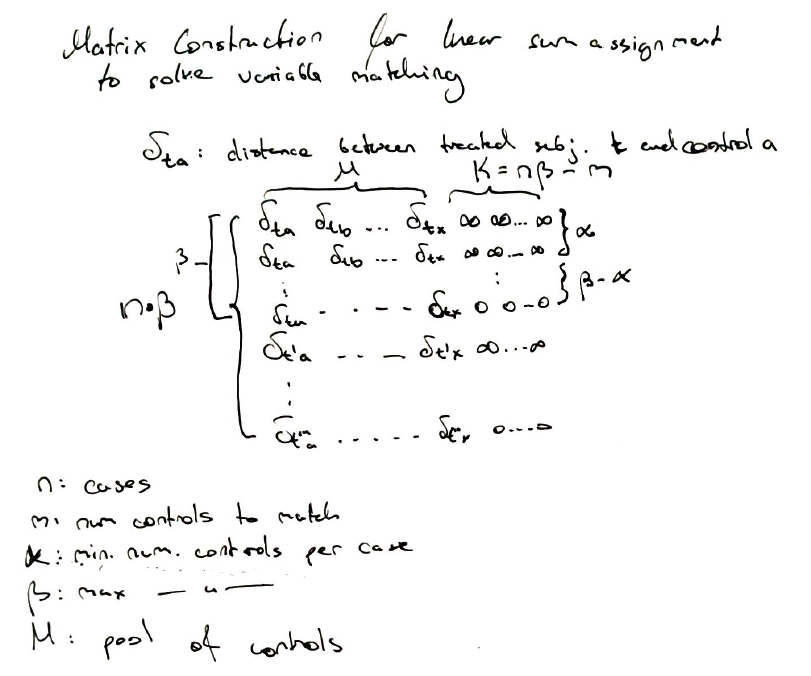 Matrix Construction for linear sum assignment
to solve variable matching
δta : distance between treated subj. t and control a
M K = nβ - m
δta δtb ... δtx ∞ ∞ ... ∞ } α
β δta δtb ... δtx ∞ ∞ ... ∞
⋮ ⋮ } β - α
n·β δta . . - - - δtx 0 0 - 0
δt'a - - - δt'x ∞ .... ∞
⋮
. . . . . . 0 .... 0
n: cases
m: num controls to match
α: min. num. controls per case
β: max — " —
M: pool of controls